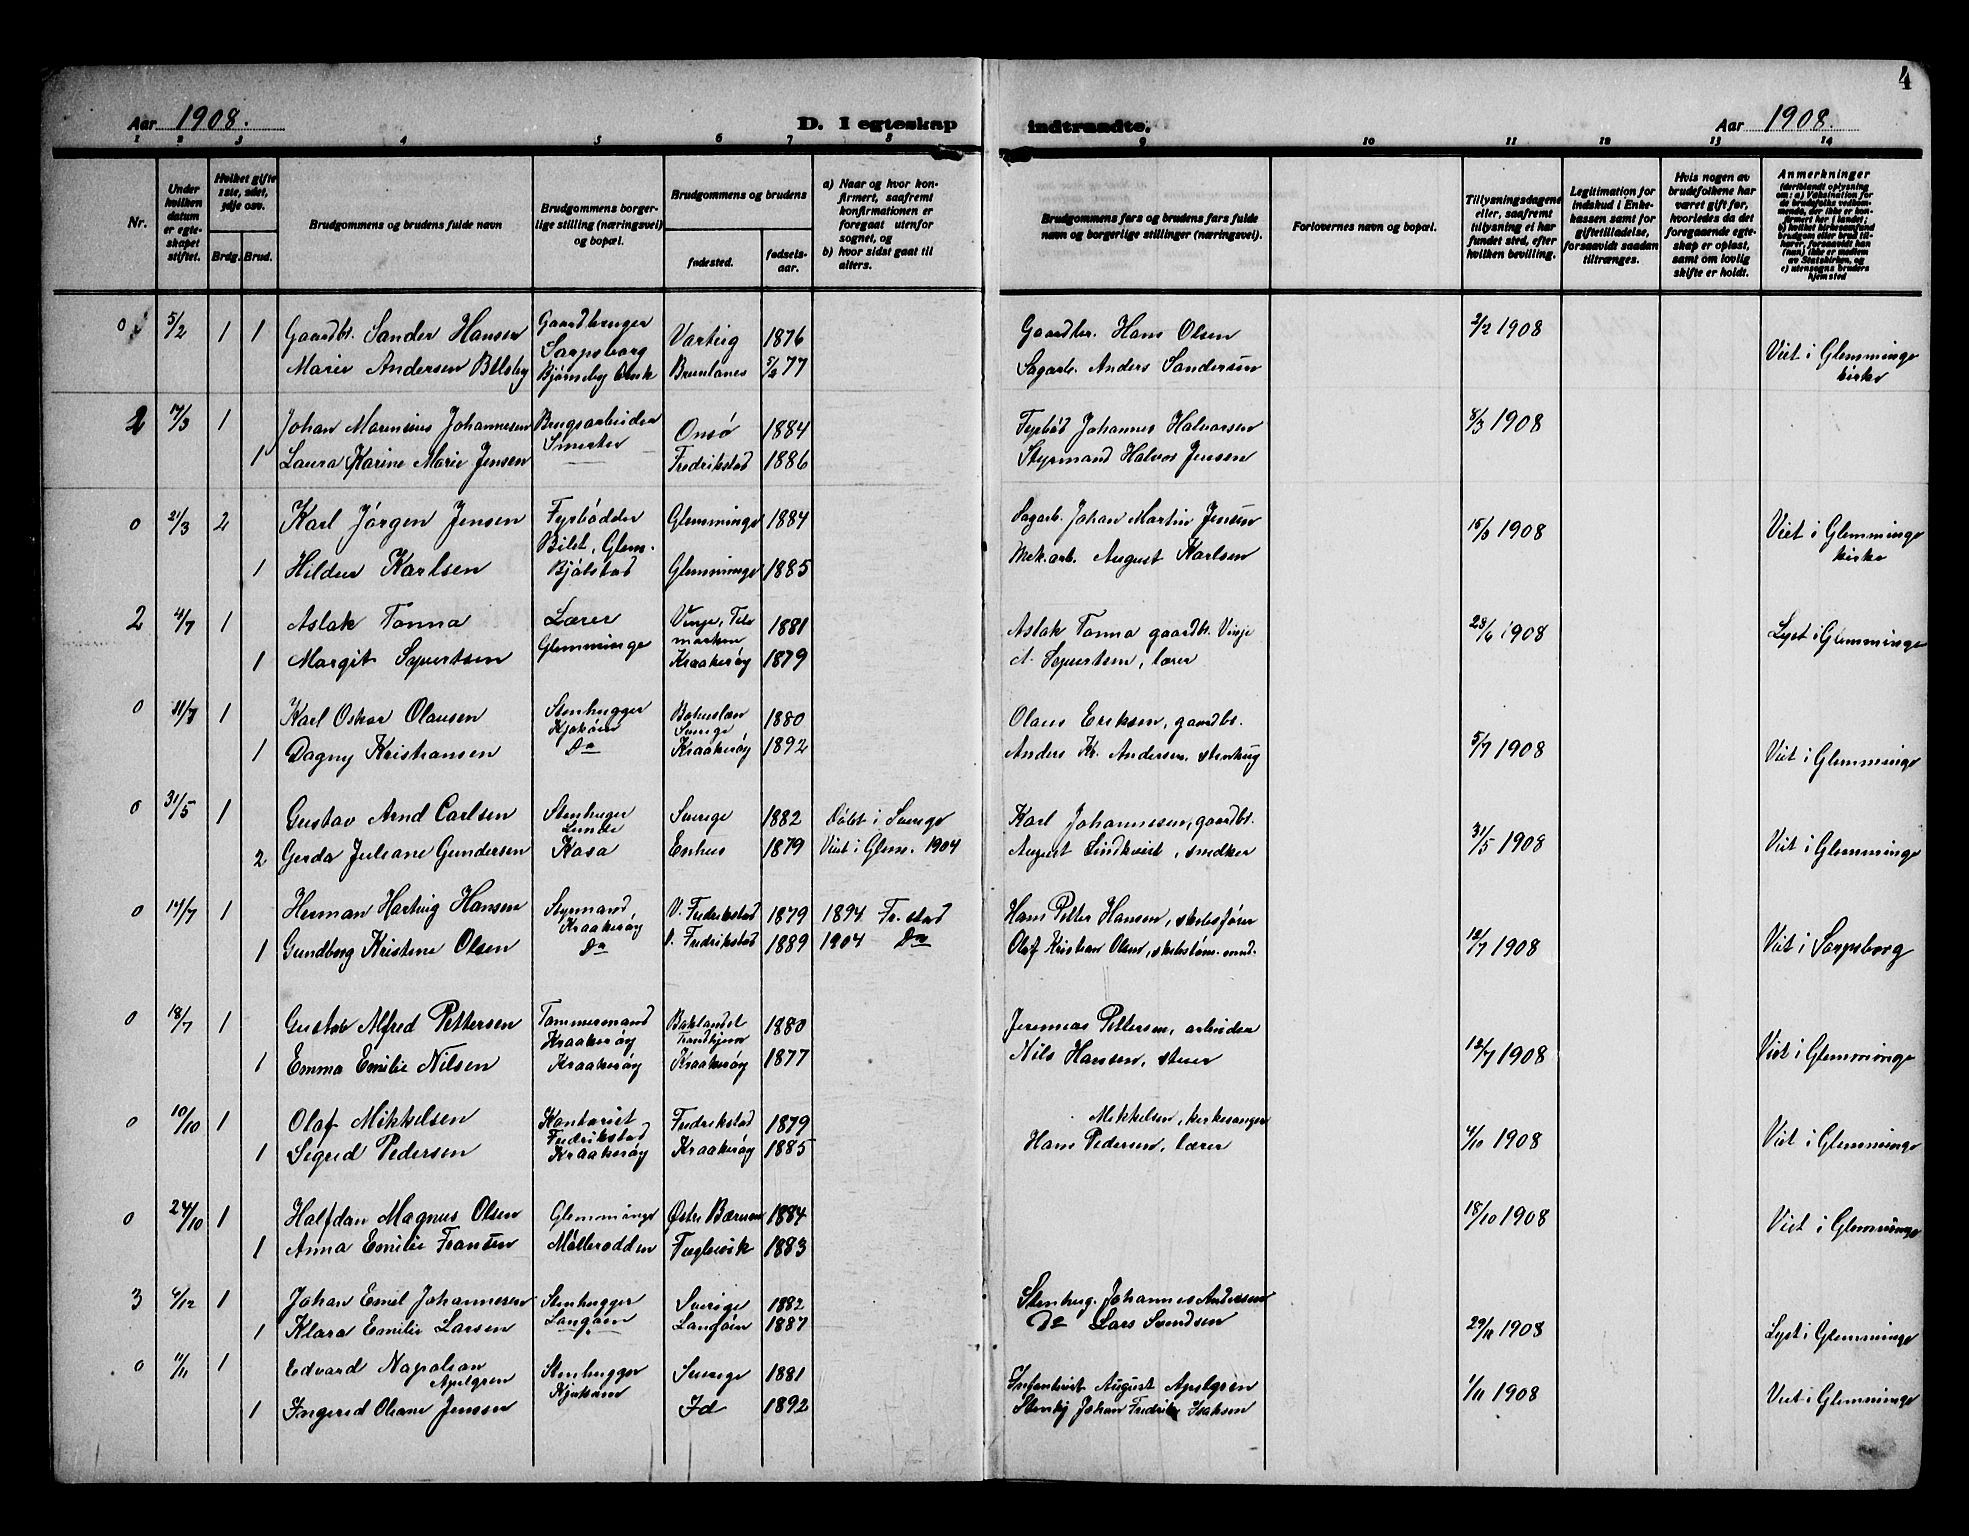 4
Aar 1908.
D. I egteskap
indtraadte.
Aar 1908.
1 2 3 4 5 6 7 8 9 10 11 12 13 14
Nr.
Under hvilken datum er egteskapet stiftet.
Hvilket gifte 1ste, 2det, 3dje osv.
Brdg. Brud.
Brudgommens og brudens fulde navn
Brudgommens borgerlige stilling (næringsvei) og bopæl.
Brudgommens og brudens
fødested.
fødselsaar.
a) Naar og hvor konfirmert, saafremt konfirmationen er foregaat utenfor sognet, og
b) hvor sidst gaat til alters.
Brudgommens fars og brudens fars fulde navn og borgerlige stillinger (næringsvei).
Forlovernes navn og bopæl.
Tillysningsdagene eller, saafremt tillysning ei har fundet sted, efter hvilken bevilling.
Legitimation for indskud i Enkekassen samt for giftetilladelse, forsaavidt saadan tiltrænges.
Hvis nogen av brudefolkene har været gift før, hvorledes da det foregaaende egteskap er opløst, samt om lovlig skifte er holdt.
Anmerkninger
(deriblandt oplysning om: a) Vaksination for de brudefolks vedkommende, der ikke er konfirmert her i landet; b) hvilket kirkesamfund brudgom eller brud tilhører, forsaavidt han (hun) ikke er medlem av Statskirken, og c) utensogns bruders hjemsted
0 5/2 1 1 Gaardbr. Sander Hansen Gaardbruger Sarpsborg Varteig 1876 Gaardbr. Hans Olsen 2/2 1908
Marie Andersen Bjørneby 77 Sagarb. Anders Sandersen Viet i Glemminge kirke
17/3 1 Johan Marinius Johannesen Brugsarbeider Onsø 1884 Fyrbød Johannes Halvorsen 8/3 1908
1 Laura Karine Marie Jensen Fredrikstad 1886 Styrmand Halvor Jensen
0 21/3 2 Karl Jörgen Jensen Fyrbödder Glemminge 1884 Sagarb. Johan Martin Jensen 15/3 1908 Viet i Glemminge kirke
1 Hildur Karlsen Bilet, Glem. Bjölstad Glemminge 1885 Mek.arb. August Karlsen
2 4/7 1 Aslak Tonna Lærer Vinje, Telemarken 1881 Aslak Tonna gaardbr. Vinje 1908 Lyst i Glemminge
1 Margit Syvertsen Glemminge Kraakeröy 1879 Syvertsen, lærer
0 1 Karl Oskar Olausen Stenhugger Kjøköen Bohuslæn Sverige 1880 Olaus Eriksen, gaardbr.
1 Dagny Kristiansen Do Kraakeröy 1892 Anders Kr. Andersen, stenhug 5/7 1908 Viet i Glemminge
0 31/5 1 Gustav Arnd Carlsen Stenhugger Sverige 1882 Döbt i Sverige Karl Johannesen, gaardbr. 31/5 1908 Viet i Glemminge
2 Gerda Juliane Gundersen Kasa Enhus 1879 Viet i Glem. 1904 August Lindkvist, snedker
0 14/7 1 Herman Hartvig Hansen Styrmand, Kraakeröy V. Fredrikstad 1879 1894 Fr.stad Hans Petter Hansen, skibsförer
1 Gundborg Kristine Olsen Do V. Fredrikstad 1889 1904 Do Olaf Kristian Olsen, skibstöm.mnd. 12/7 1908 Viet i Sarpsborg
0 18/7 1 Gustav Alfred Pettersen Tømmermand Kraakeröy Baklandet Trondhjem 1880 Jeremias Pettersen, arbeider 12/7 1908 Viet i Glemminge
1 Emma Emilie Nilsen Kraakeröy Kraakeröy 1877 Nils Hansen, stuer
0 10/10 1 Olaf Mikkelsen Kontorist Fredrikstad Fredrikstad 1879 Mikkelsen, kirkesanger 4/10 1908 Viet i Glemminge
1 Sigrid Pedersen Kraakeröy Kraakeröy 1885 Hans Pedersen, lærer
0 24/10 1 Halfdan Magnus Olsen Glemminge Østre Bærum 1884 18/10 1908 Viet i Glemminge
1 Anna Emilie Fransen Möllerodden Fuglevik 1883
3 6/12 1 Johan Emil Johannesen Stenhugger Sverige 1882 Stenhug. Johannes Andersen
1 Klara Emilie Larsen Langöen Langöen 1887 Do Lars Svendsen 29/11 1908 Lyst i Glemminge
0 11/11 1 Edvard Napolian Apelgren Stenhugger Kjøköen Sverige 1881 Infanterist August Apelgren 1/11 1908 Viet i Glemminge
1 Ingerid Oliane Jensen Id 1892 Johan Fredrik Isaksen